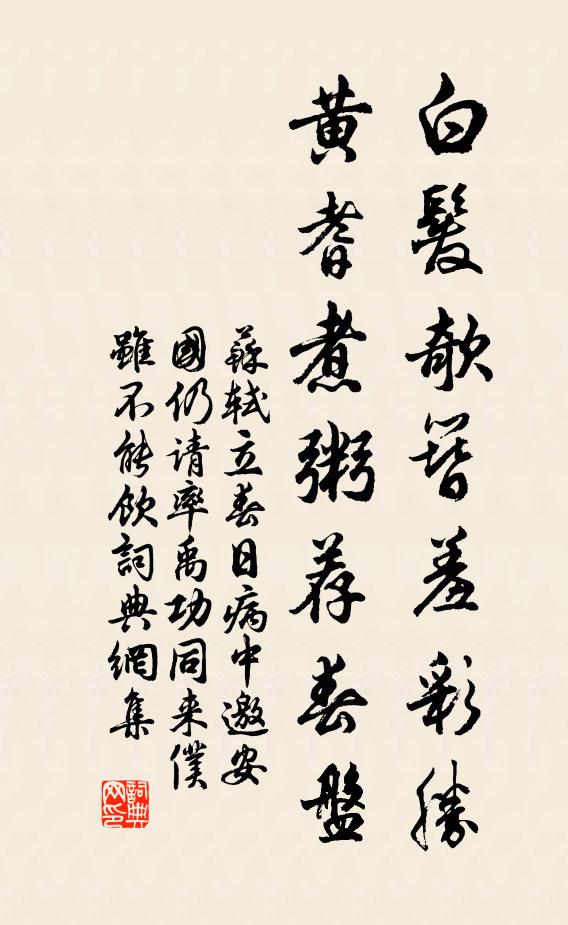 白髮欹簪羞彩勝
黃耆煮粥荐春盤
蘇軾立春日病中邀安
國仍請率禹功同来僕
雖不能飲詞典網集
詞典
网印